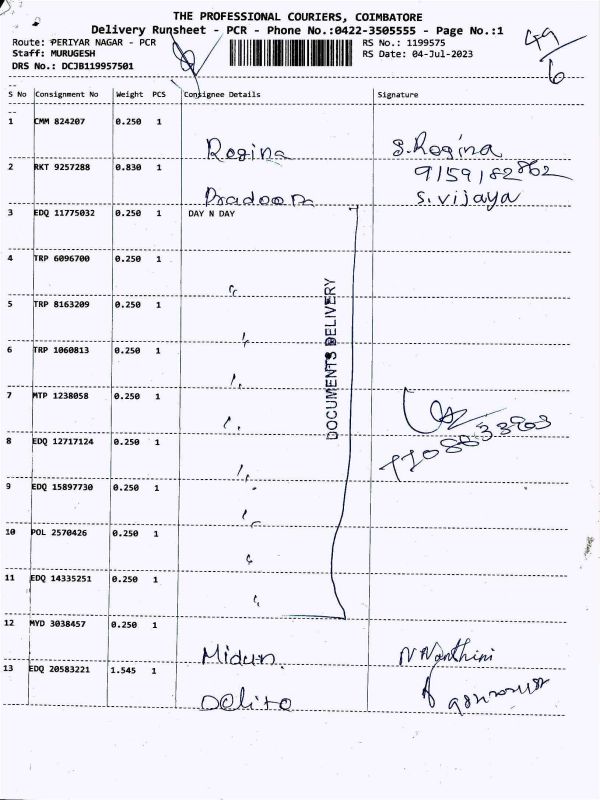 THE PROFESSIONAL COURIERS, COIMBATORE
Delivery Runsheet - PCR - Phone No.:0422-3505555 - Page No.:1
Route: PERIYAR NAGAR - PCR
RS No.: 1199575
Staff: MURUGESH
RS Date: 04-Jul-2023
DRS No.: DCJB119957501
49/6
S No Consignment No Weight PCS Consignee Details Signature
1 CMM 824207 0.250 1 Rogina S.Rogina
9159182862
2 RKT 9257288 0.830 1 Pradoon S.vijaya
3 EDQ 11775032 0.250 1 DAY N DAY
4 TRP 6096700 0.250 1
5 TRP 8163209 0.250 1
6 TRP 1060813 0.250 1
DOCUMENTS DELIVERY
7 MTP 1238058 0.250 1
8 EDQ 12717124 0.250 1
9 EDQ 15897730 0.250 1
10 POL 2570426 0.250 1
11 EDQ 14335251 0.250 1
12 MYD 3038457 0.250 1 Midun. N Nanthini
13 EDQ 20583221 1.545 1